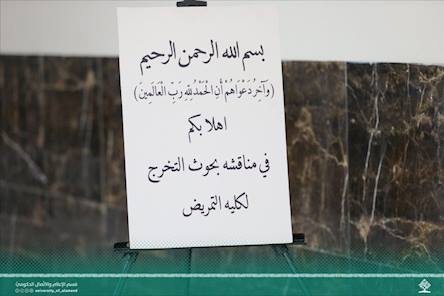 بسم الله الرحمن الرحيم
(وَآخِرُ دَعْوَاهُمْ أَنِ الْحَمْدُ لِلَّهِ رَبِّ الْعَالَمِينَ)
اهلا بكم
في مناقشه بحوث التخرج
لكليه التمريض
قسم الإعلام والاتصال الحكومي
university_of_alameed